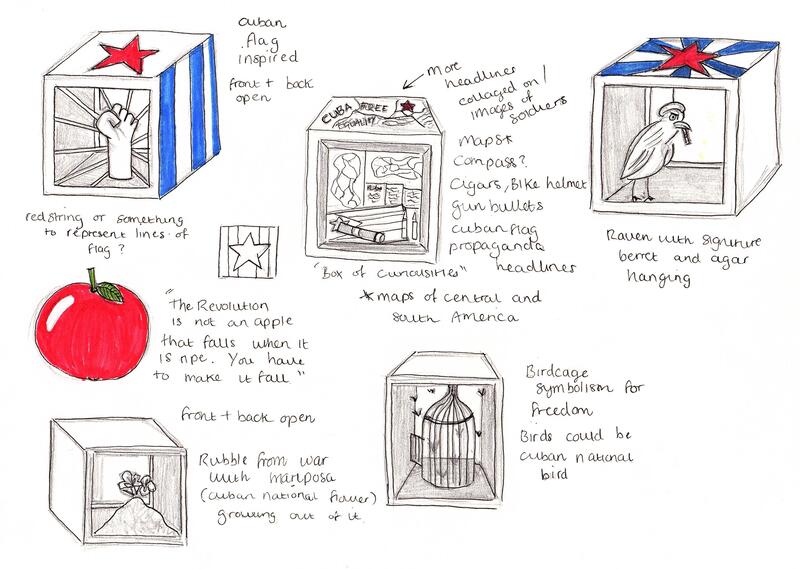 cuban
flag
inspired
front + back
open
red string or something
to represent lines of
flag?
CUBA FREE
EQUALITY
More
headlines
collaged on /
images of
soldiers
maps*
compass?
Cigars, Bike helmet
gun bullets
cuban flag
propaganda
headlines
"Box of curiousities"
*maps of central and
south America
Raven with signature
berret and
hanging
"The Revolution
is not an apple
that falls when it
is ripe. You have
to make it fall."
front + back open
Rubble from war
with mariposa
(cuban national flower)
growing out of it.
Birdcage
symbolism for
freedom
Birds could be
cuban national
bird